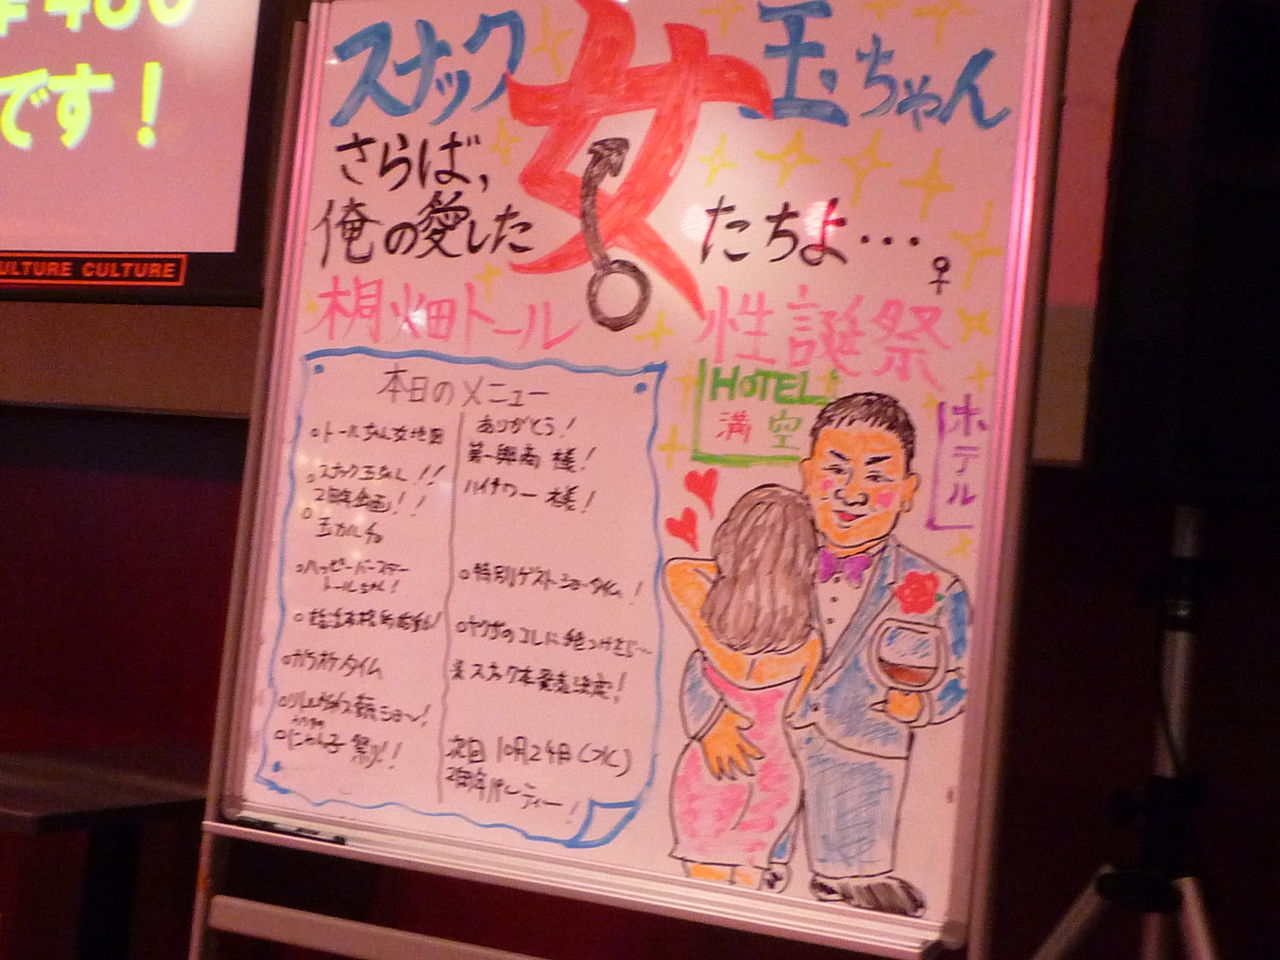 ¥400
です!
ULTURE CULTURE
スナック 女 玉ちゃん
さらば、
俺の愛した 女 たちよ…
トール 性誕祭
本日のメニュー
トールちゃん女地図
スナック玉ちゃん!!
2周年企画!!
玉カルチョ
ハッピーバースデー
トールちゃん!
カラオケタイム
にゃん子 祭り!!
ありがとう!
第一興商 様!
ハイサワー 様!
特別ゲストショータイム!
スナック本発売決定!
次回 10月24日(水)
2周年パーティー!
HOTEL
満 空
ホテル